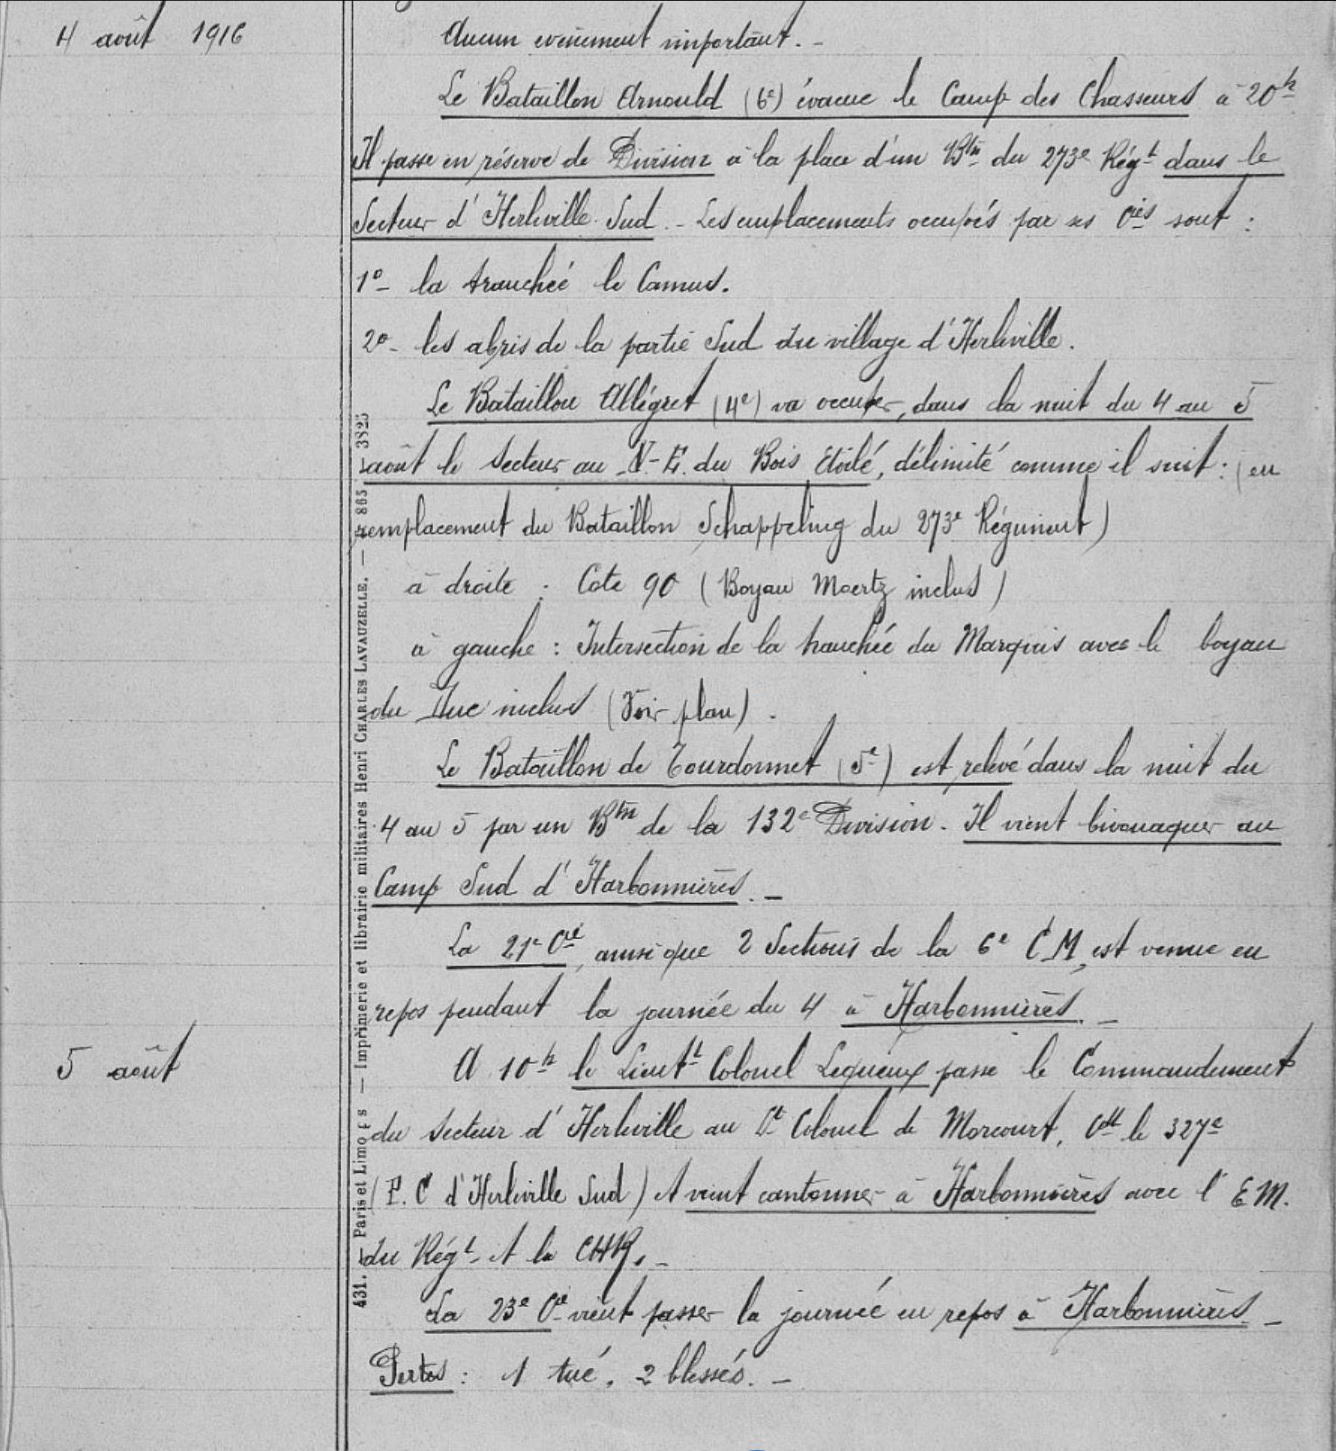 4 août 1916
Aucun evènement important. -
Le Bataillon Arnould (6e) évacue le Camp des Chasseurs à 20h
Il passe en réserve de Division à la place d'un Btn du 273e Régt dans le
Secteur d'Herleville Sud. - Les emplacements occupés par ses Cies sont :
1o- la tranchée le Camus.
2o- les abris de la partie Sud du village d'Herleville.
Le Bataillon Allégret (4e) va occuper, dans la nuit du 4 au 5
août le secteur au N-E. du Bois Etoilé, délimité comme il suit : (en
remplacement du Bataillon Schappeling du 273e Régiment)
à droite : Cote 90 (Boyau Moertz inclus)
à gauche : Intersection de la tranchée du Marquis avec le boyau
du Duc inclus (Voir plan).
Le Bataillon de Tourdonnet (5e) est relevé dans la nuit du
4 au 5 par un Btn de la 132e Division. Il vient bivouaquer au
Camp Sud d'Harbonnières. -
La 21e Cie, ainsi que 2 Sections de la 6e CM, est venue en
repos pendant la journée du 4 à Harbonnières. -
5 août
A 10h le Lieutt Colonel Lequeux passe le Commandement
du secteur d'Herleville au Lt Colonel de Morcourt, Cdt le 327e
(P.C d'Herleville Sud) et vient cantonner à Harbonnières avec l'EM.
du Régt et la CHR. -
La 23e Cie vient passer la journée en repos à Harbonnières. -
Pertes : 1 tué, 2 blessés. -
431. - Paris et Limoges - Imprimerie et librairie militaires Henri CHARLES LAVAUZELLE. - 865 - 3825